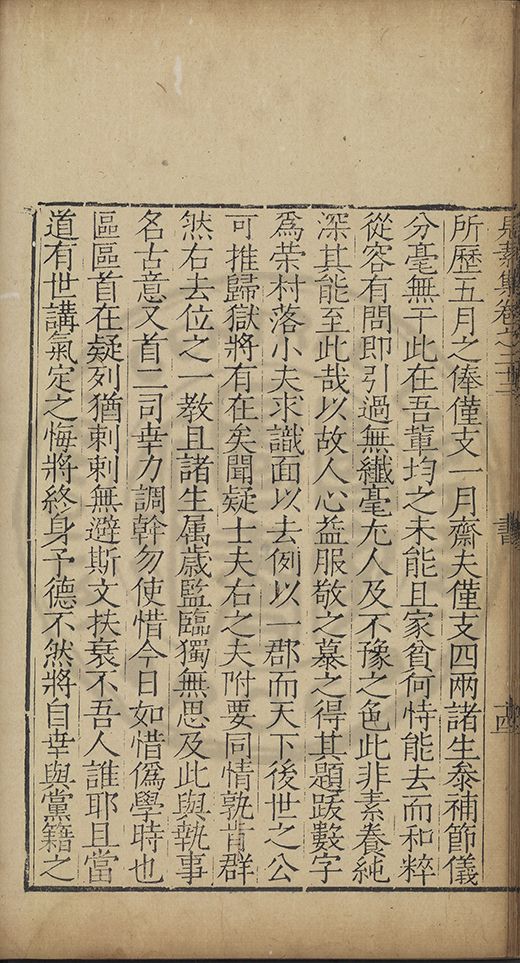 集卷之二十
書
十四
所歷五月之俸僅支一月齋夫僅支四兩諸生叅補節儀
分毫無干此在吾輩均之未能且家貧何恃能去而和粹
從容有問即引過無纎毫尢人及不豫之色此非素養純
深其能至此哉以故人心益服敬之慕之得其題跋數字
爲荣村落小夫求識面以去例以一郡而天下後世之公
可推歸獄將有在矣聞疑士夫右之夫附要同情孰肯群
然右去位之一教且諸生属歲監臨獨無思及此與執事
名古意又首二司幸力調幹勿使惜今日如惜僞學時也
區區首在疑列猶剌剌無避斯文扶衰不吾人誰耶且當
道有世講氣定之悔將終身予德不然將自幸與黨籍之